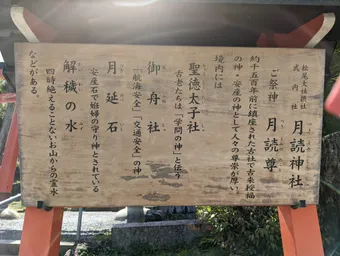 松尾大社摂社
式内社
月読神社
つきよみ
ご祭神 月読尊
約千五百年前に鎮座された古社で古来授福
の神・安産の神として人々の尊崇が厚い
境内には
聖徳太子社
古老たちは「学問の神」と伝う
御舟社
「航海安全」「交通安全」の神
月延石
安産石で妊婦の守り神とされている
解穢の水
四時絶えることないお山からの霊水
などがある。